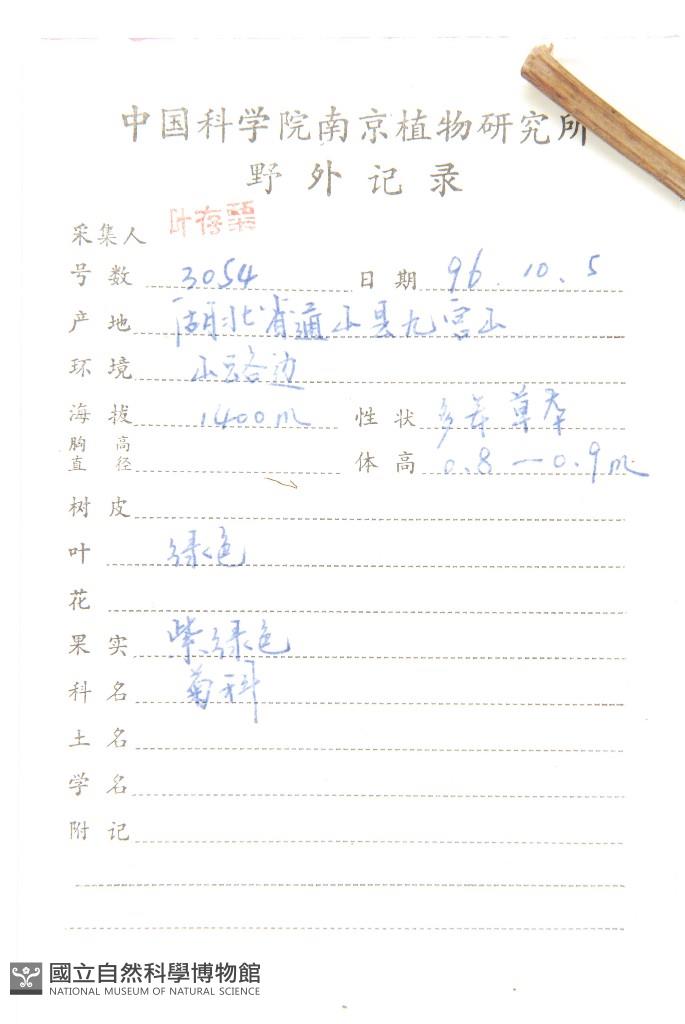 中国科学院南京植物研究所
野外记录
采集人 叶存粟
号数 3054 日期 96.10.5
产地 湖北省通山县九宫山
环境 山路边
海拔 1400m 性状 多年草本
胸高直径 体高 0.8—0.9m
树皮
叶 绿色
花
果实 紫绿色
科名 菊科
土名
学名
附记
國立自然科學博物館
NATIONAL MUSEUM OF NATURAL SCIENCE